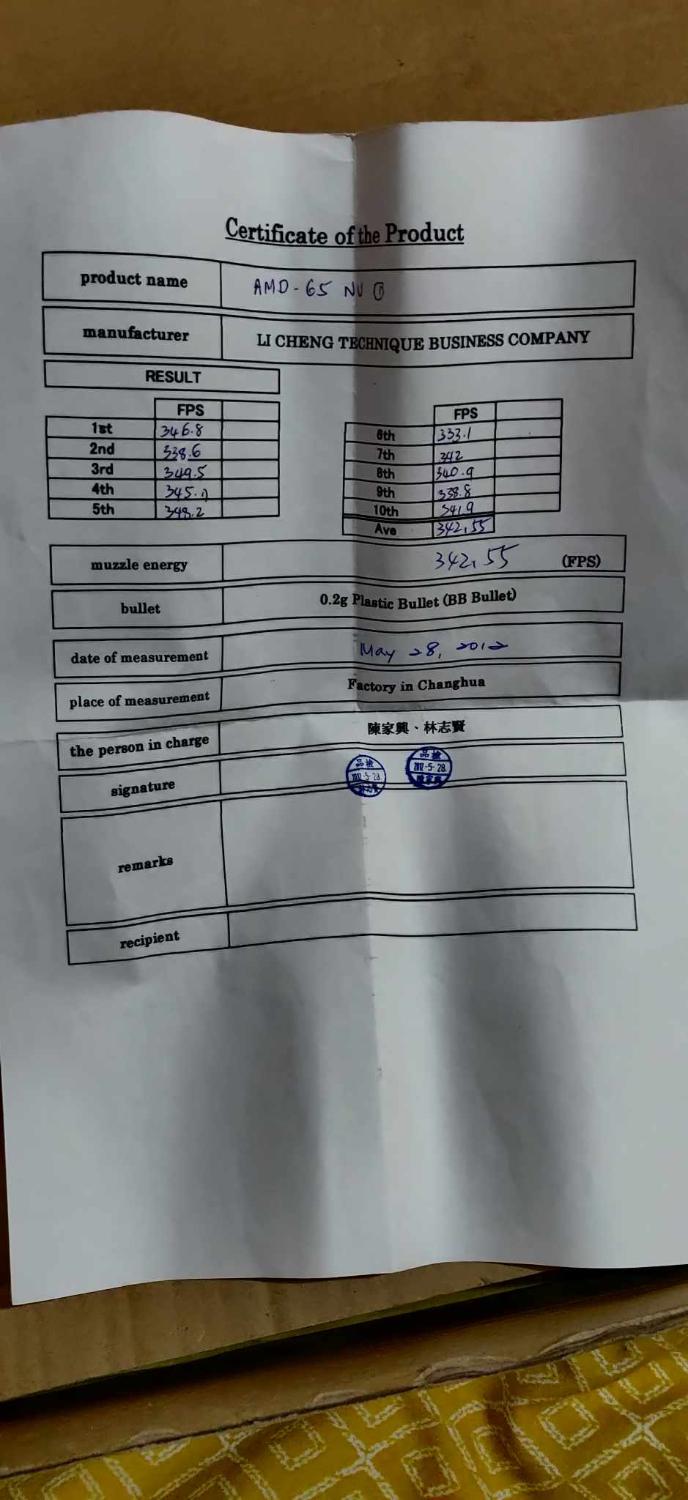 Certificate of the Product
product name AMD-65 NV
manufacturer LI CHENG TECHNIQUE BUSINESS COMPANY
RESULT
FPS
1st 346.8
2nd 338.6
3rd 349.5
4th 345.
5th 348.2
FPS
6th 333.1
7th 342
8th 340.9
9th 338.8
10th 341.9
Ave 342.55
muzzle energy 342.55 (FPS)
bullet 0.2g Plastic Bullet (BB Bullet)
date of measurement May 28, 2012
place of measurement Factory in Changhua
the person in charge 陳家興、林志賢
signature 品檢 5-28 品檢 5-28
remarks
recipient